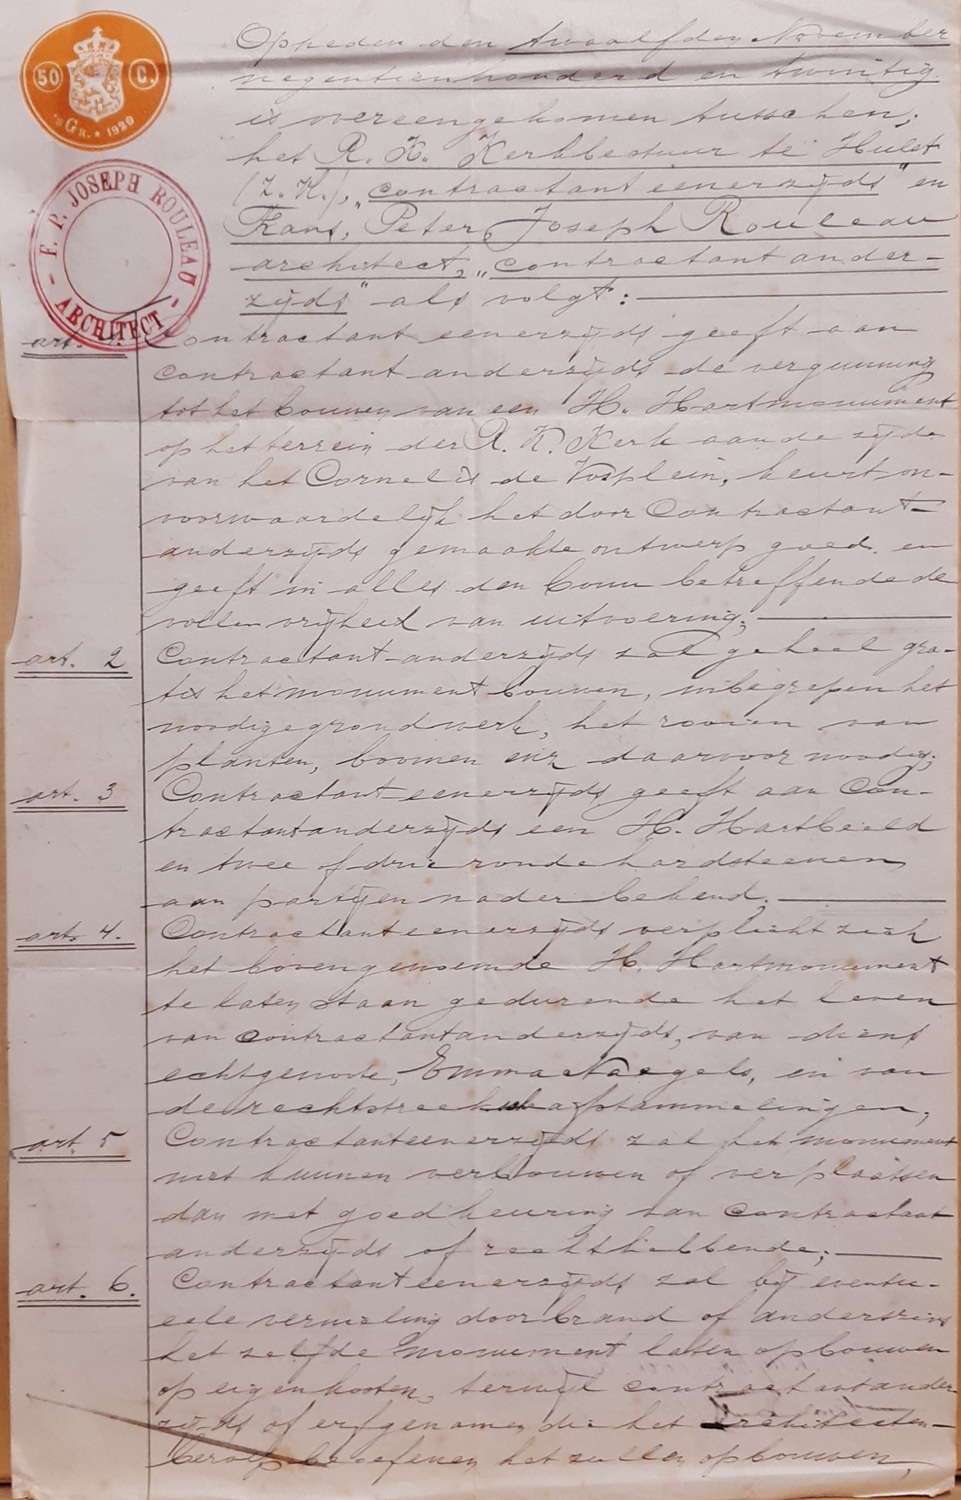 50 C.
'sGR. * 1920
F. P. JOSEPH ROULEAU
ARCHITECT
Opheden den twaalfden November
negentienhonderd en twintig
is overeengekomen tusschen;
het R. K. Kerkbestuur te Hulst
(Z. H.), „contractant eenerzijds" en
Frans, Peter, Joseph Rouleau
architect, „contractant ander-
zijds" als volgt:
art. 1. Contractant eenerzijds geeft aan
contractant anderzijds de vergunning
tot het bouwen van een H. Hartmonument
op het terrein der R. K. Kerk aan de zijde
van het Cornelis de Vosplein, keurt on-
voorwaardelijk het door Contractant-
anderzijds gemaakte ontwerp goed en
geeft in alles den bouw betreffende de
vollen vrijheid van uitvoering;
art. 2 Contractant-anderzijds zal geheel gra-
tis het monument bouwen, inbegrepen het
noodige grondwerk, het rooien van
planten, boomen enz daarvoor noodig;
art. 3 Contractant eenerzijds geeft aan Con-
tractantanderzijds een H. Hartbeeld
en twee of drie ronde hardsteenen
aan partijen nader bekend.
art. 4. Contractanteenerzijds verplicht zich
het bovengenoemde H. Hartmonument
te laten staan gedurende het leven
van contractantanderzijds, van diens
echtgenoote, Emma en van
de rechtstreeksche afstammelingen,
art. 5 Contractanteenerzijds zal het monument
niet kunnen verbouwen of verplaatsen
dan met goedkeuring van contractant
anderzijds of rechthebbende;
art. 6. Contractanteenerzijds zal bij eventu-
eele vernieling door brand of anderszins
het zelfde monument laten opbouwen
op eigen kosten, terwijl contractantander-
zijds of erfgenamen die het architecten-
beroep beoefenen het zullen opbouwen,